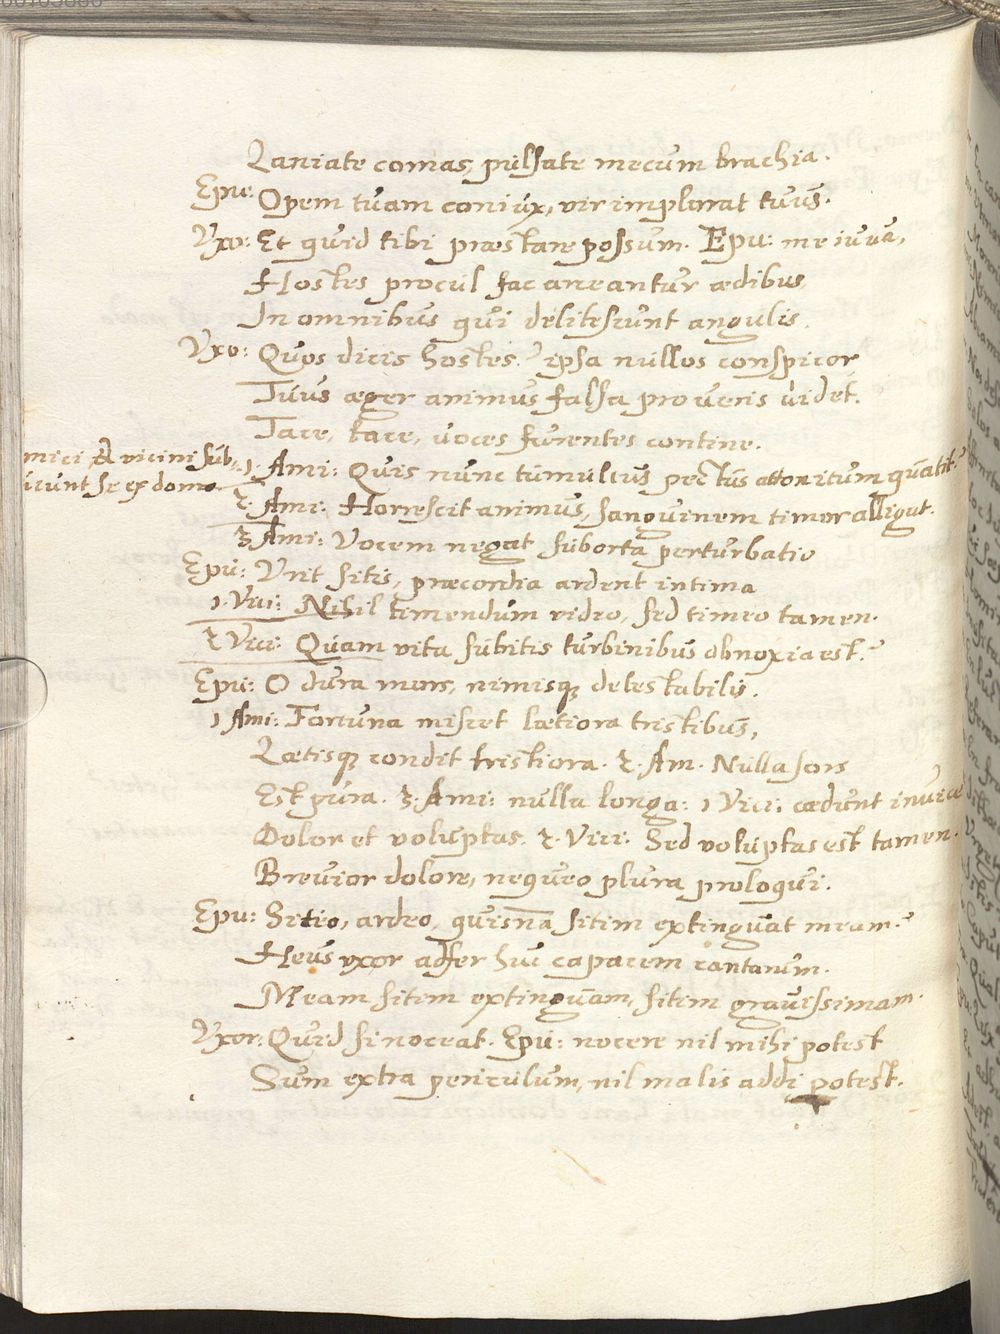 Laniate comas, pulsate mecum brachia.
Epu: Opem tuam coniux, vir implorat tuus.
Vxo: Et quid tibi præstare possum. Epu: me iuua,
Hostes procul fac arceantur ædibus
In omnibus qui delitescunt angulis.
Vxo: Quos dicis hostes? ipsa nullos conspicor
Tuus æger animus falsa pro veris uidet.
Tace, tace, uoces furentes contine.
mici & vicini sub-
icunt se ex domo
1. Ami: Quis nunc tumultus pectus attonitum quatit?
2. Ami: Horrescit animus, sanguinem timor alligat.
3 Ami: Vocem negat suborta perturbatio
Epu: Vrit sitis, præcordia ardent intima
1. Vici: Nihil timendum video, sed timeo tamen.
2 Vici: Quam vita subitis turbinibus obnoxia est?
Epu: O dura mors, nimisq detestabilis.
1 Ami: Fortuna miscet lætiora tristibus,
Lætisq condit tristiora. 2. Am. Nulla sors
Est pura. 3. Ami: nulla longa: 1 Vici: cædunt inuice
Dolor et voluptas. 2. Vici: Sed voluptas est tamen.
Breuior dolore, nequeo plura proloqui.
Epu: Sitio, ardeo, quisna sitim extinguat meam?
Heus vxor affer huc capacem cantarum.
Meam sitim extinguam, sitim grauissimam.
Vxor: Quid si noceat. Epu: nocere nil mihi potest
Sum extra periculum, nil malis addi potest.